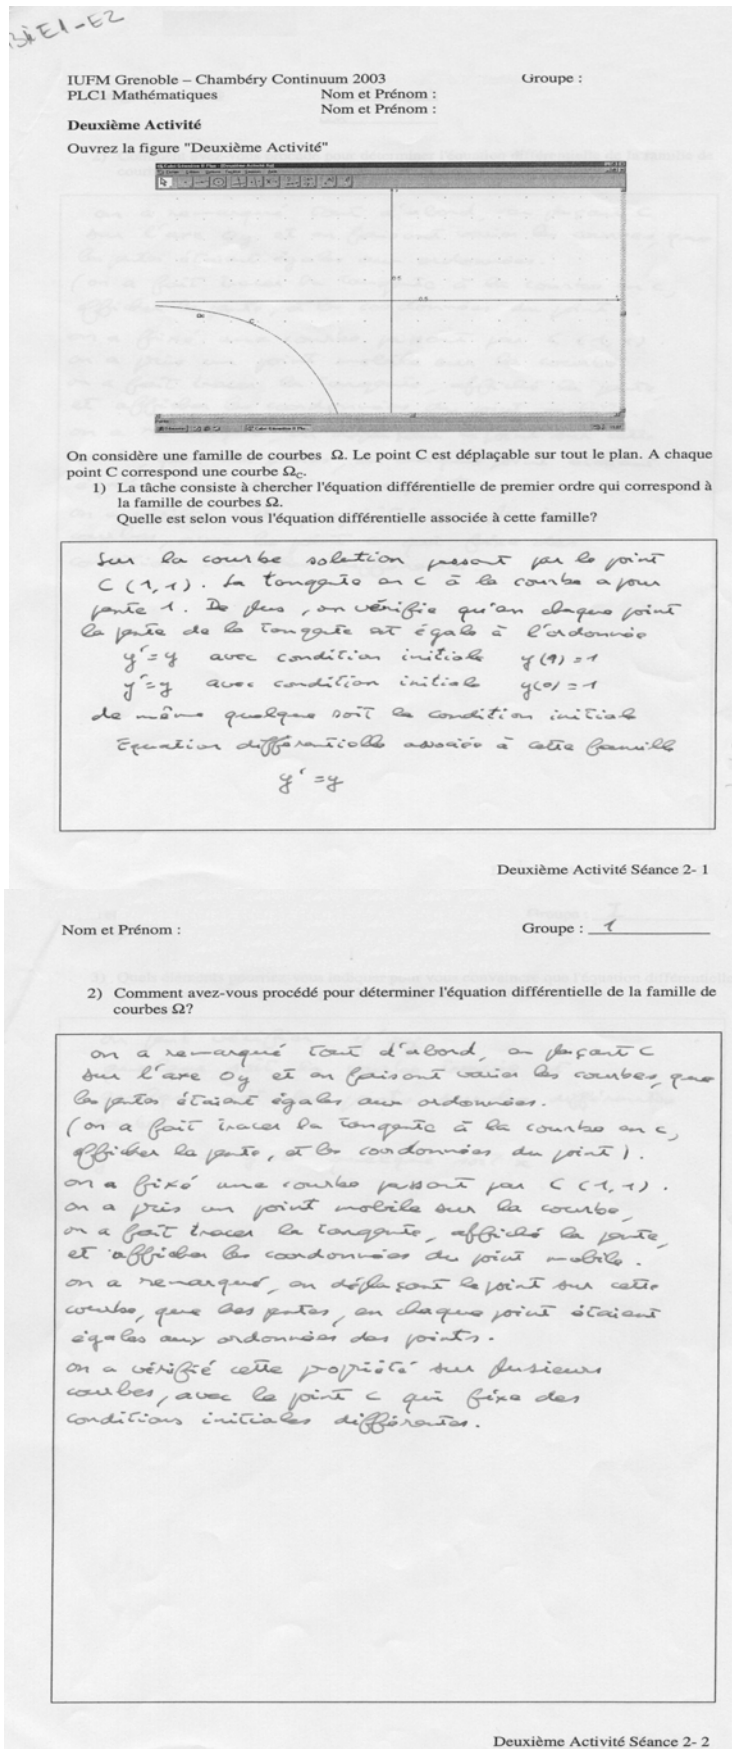 IUFM Grenoble – Chambéry Continuum 2003 Groupe :
PLC1 Mathématiques Nom et Prénom :
Nom et Prénom :
Deuxième Activité
Ouvrez la figure "Deuxième Activité"
On considère une famille de courbes Ω. Le point C est déplaçable sur tout le plan. A chaque
point C correspond une courbe Ωc.
1) La tâche consiste à chercher l'équation différentielle de premier ordre qui correspond à
la famille de courbes Ω.
Quelle est selon vous l'équation différentielle associée à cette famille?
Sur la courbe solution passant par le point
C (1,1). La tangente en C à la courbe a pour
pente 1. De plus, on vérifie qu'en chaque point
la pente de la tangente est égale à l'ordonnée
y'=y avec condition initiale y(1)=1
y'=y avec condition initiale y(0)=1
de même quelque soit la condition initiale
Equation différentielle associée à cette famille
y'=y
Deuxième Activité Séance 2- 1
Nom et Prénom : Groupe : 1
2) Comment avez-vous procédé pour déterminer l'équation différentielle de la famille de
courbes Ω?
on a remarqué tout d'abord, en plaçant C
sur l'axe Oy et en faisant varier les courbes, que
les pentes étaient égales aux ordonnées.
(on a fait tracer la tangente à la courbe en C,
afficher la pente, et les coordonnées du point).
on a fixé une courbe passant par C (1,1).
on a pris un point mobile sur la courbe,
on a fait tracer la tangente, affiché la pente,
et afficher les coordonnées du point mobile.
on a remarqué, en déplaçant le point sur cette
courbe, que les pentes, en chaque point étaient
égales aux ordonnées des points.
on a vérifié cette propriété sur plusieurs
courbes, avec le point C qui fixe des
conditions initiales différentes.
Deuxième Activité Séance 2- 2